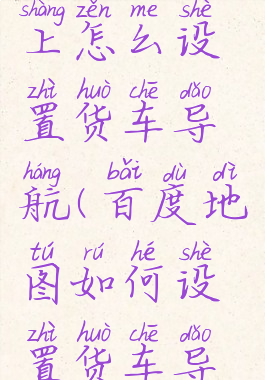 shàng zěn me shè
上怎么设
zhì huò chē dǎo
置货车导
háng bǎi dù dì
航(百度地
tú rú hé shè
图如何设
zhì huò chē dǎo
置货车导